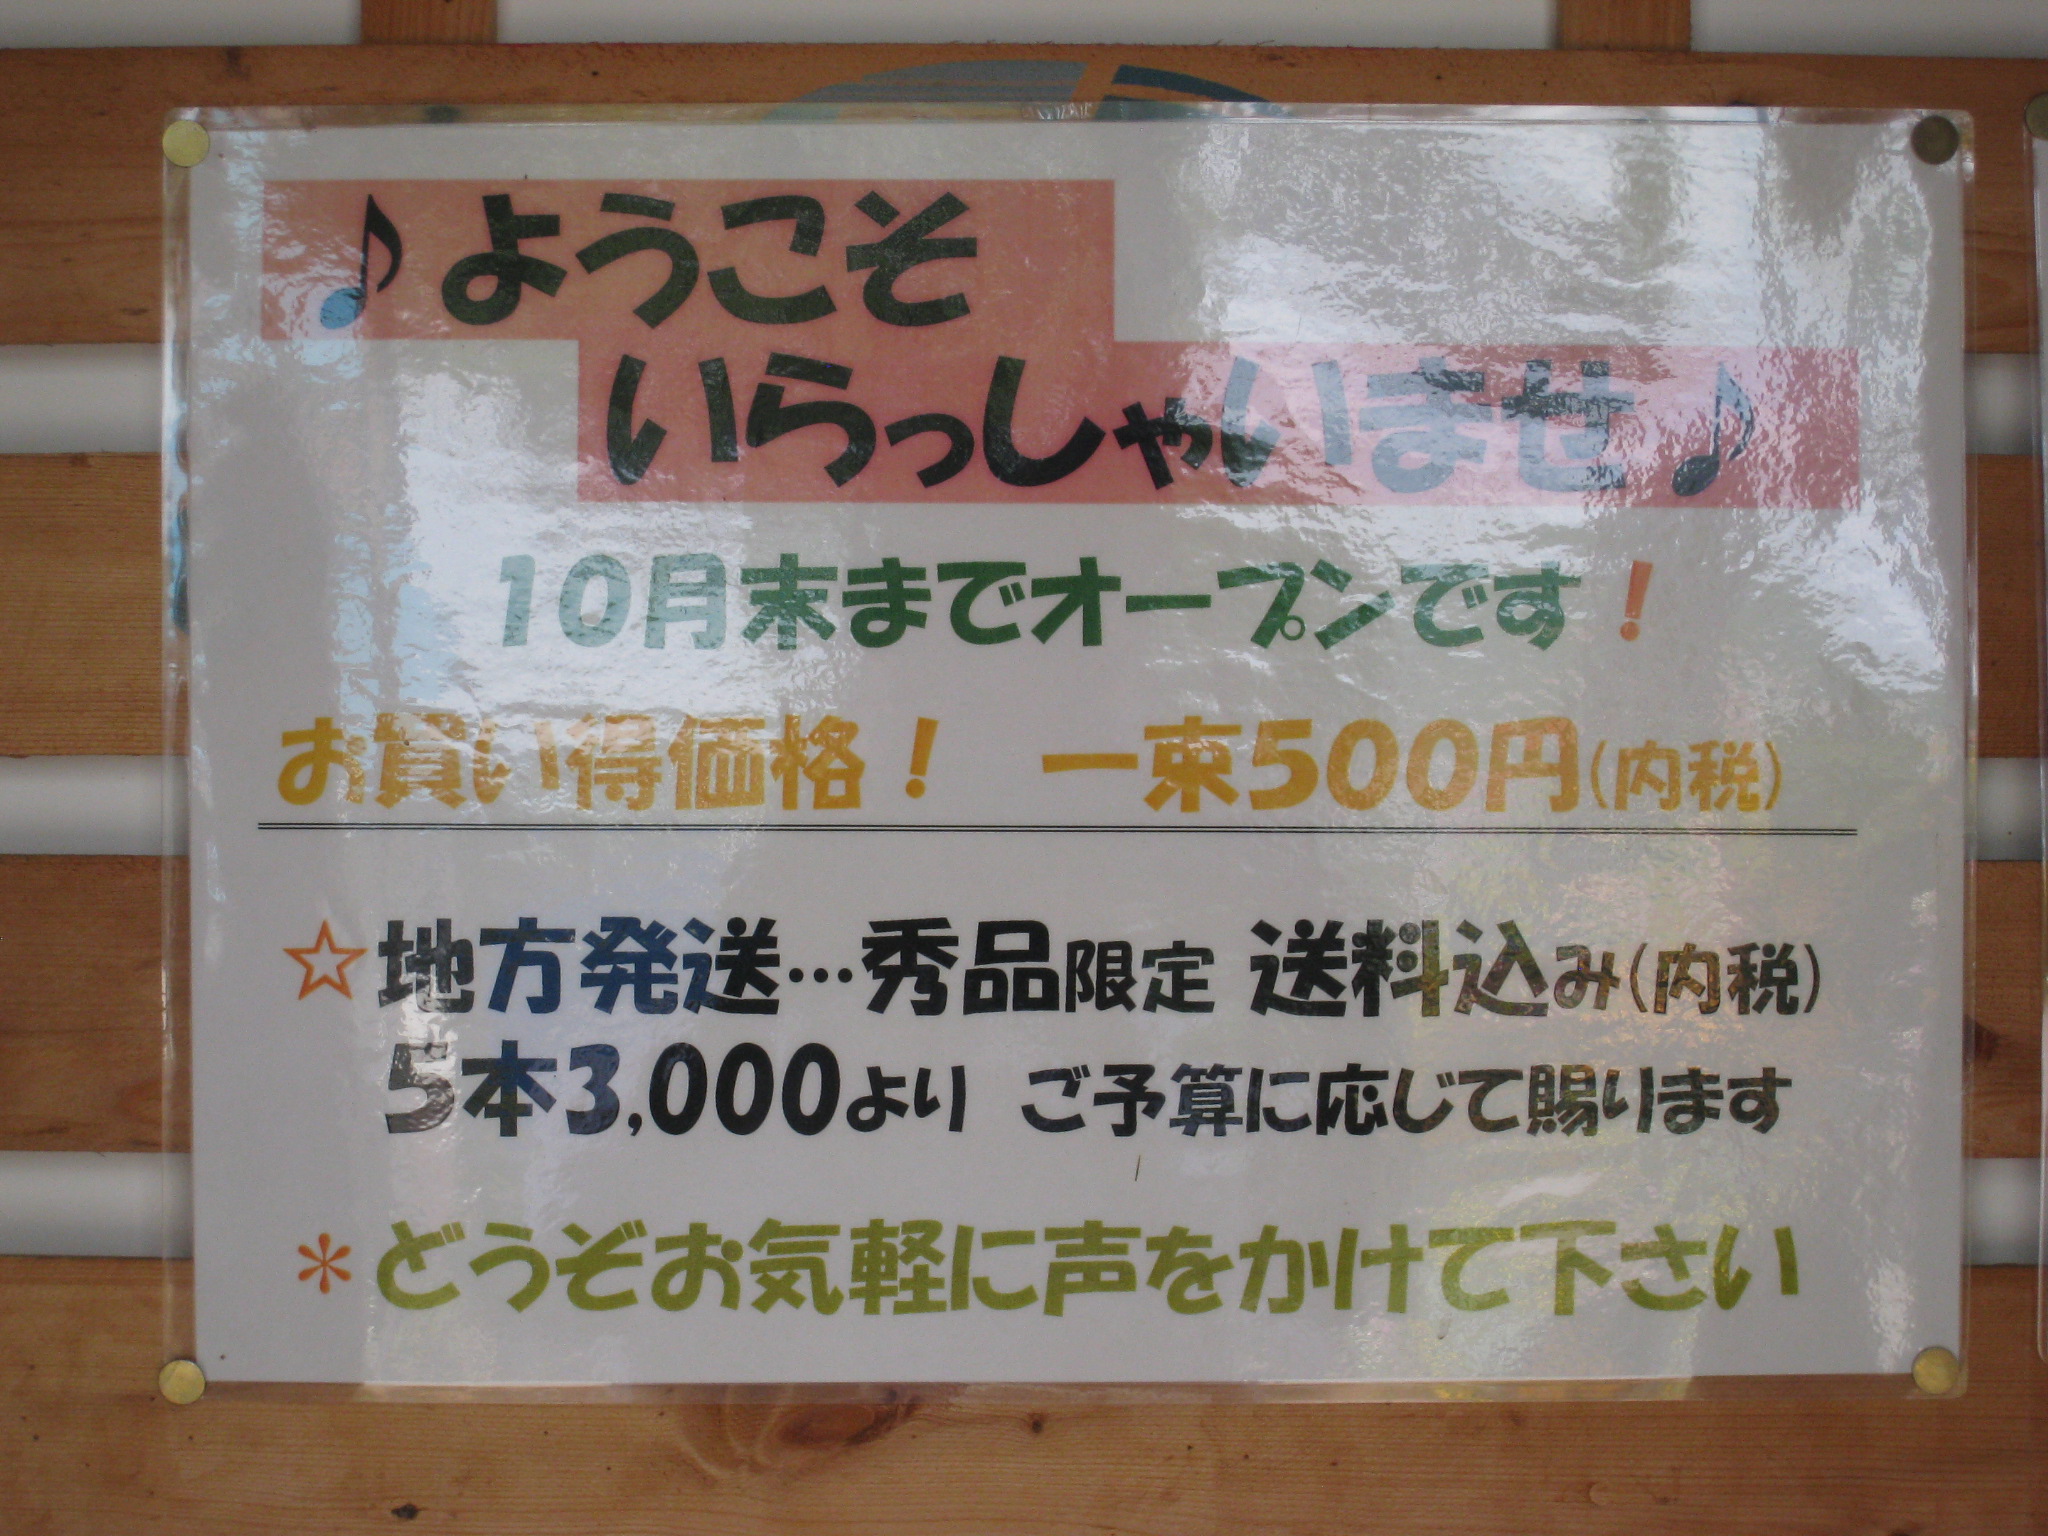 ♪ようこそ
いらっしゃいませ♪
10月末までオープンです！
お買い得価格！ 一束500円(内税)
☆地方発送…秀品限定 送料込み(内税)
5本3,000より ご予算に応じて賜ります
＊どうぞお気軽に声をかけて下さい